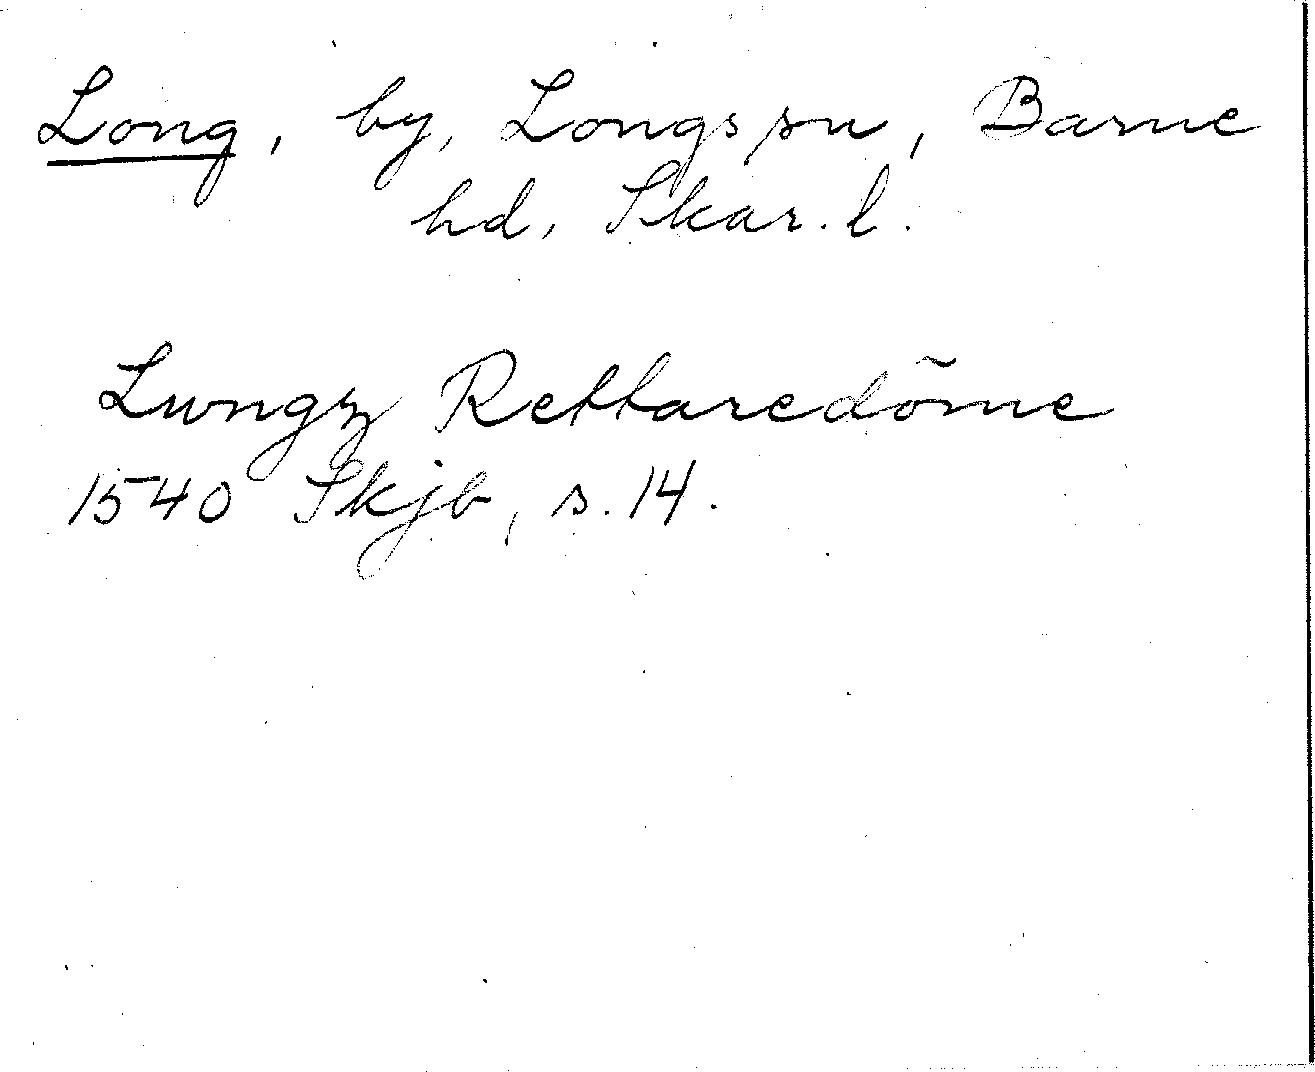 Long, by, Longs sn, Barne
hd, Skar. l.
Lwngz Rettaredõme
1540 Skjb, s. 14.